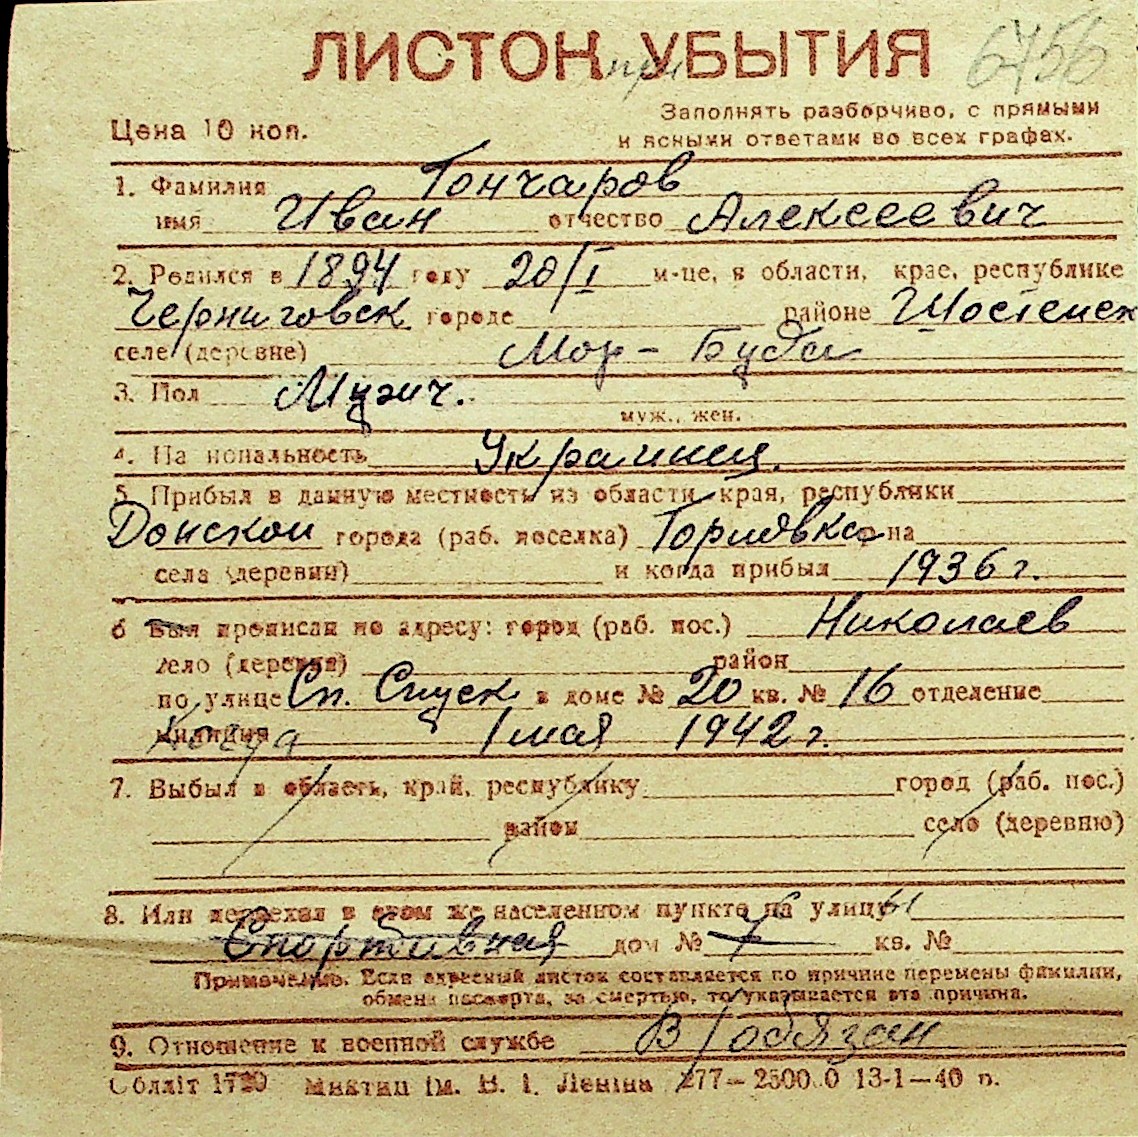 ЛИСТОК при УБЫТИЯ 6756
Заполнять разборчиво, с прямыми
Цена 10 коп. и ясными ответами во всех графах.
1. Фамилия Гончаров
имя Иван отчество Алексеевич
2. Родился в 1894 году 20/I м-це, в области, крае, республике
Черниговск городе районе Шостенск
селе (деревне) Мор-Буда
3. Пол Мужч.
муж., жен.
4. Национальность Украинец.
5. Прибыл в данную местность из области, края, республики
Донской города (раб. поселка) Горловка на
села (деревни) и когда прибыл 1936 г.
6 Был прописан по адресу: город (раб. пос.) Николаев
село (деревня) район
по улице Сп. Спуск в доме № 20 кв. № 16 отделение
милиции Когда 1 мая 1942 г.
7. Выбыл в область, край, республику город (раб. пос.)
район село (деревню)
8. Или переехал в этом же населенном пункте на улицу ы
Спортивная дом № 7 кв. №
Примечание. Если адресный листок составляется по причине перемены фамилии,
обмена паспорта, за смертью, то указывается эта причина.
9. Отношение к военной службе В/обязан
Облліт 1720 Миктип ім. В. І. Леніна 277—2500.0 13-1—40 п.